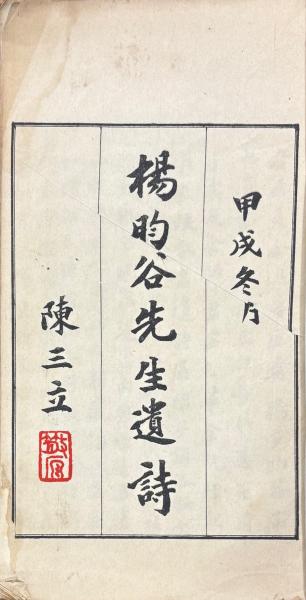 甲戌冬月
楊昀谷先生遺詩
陳三立